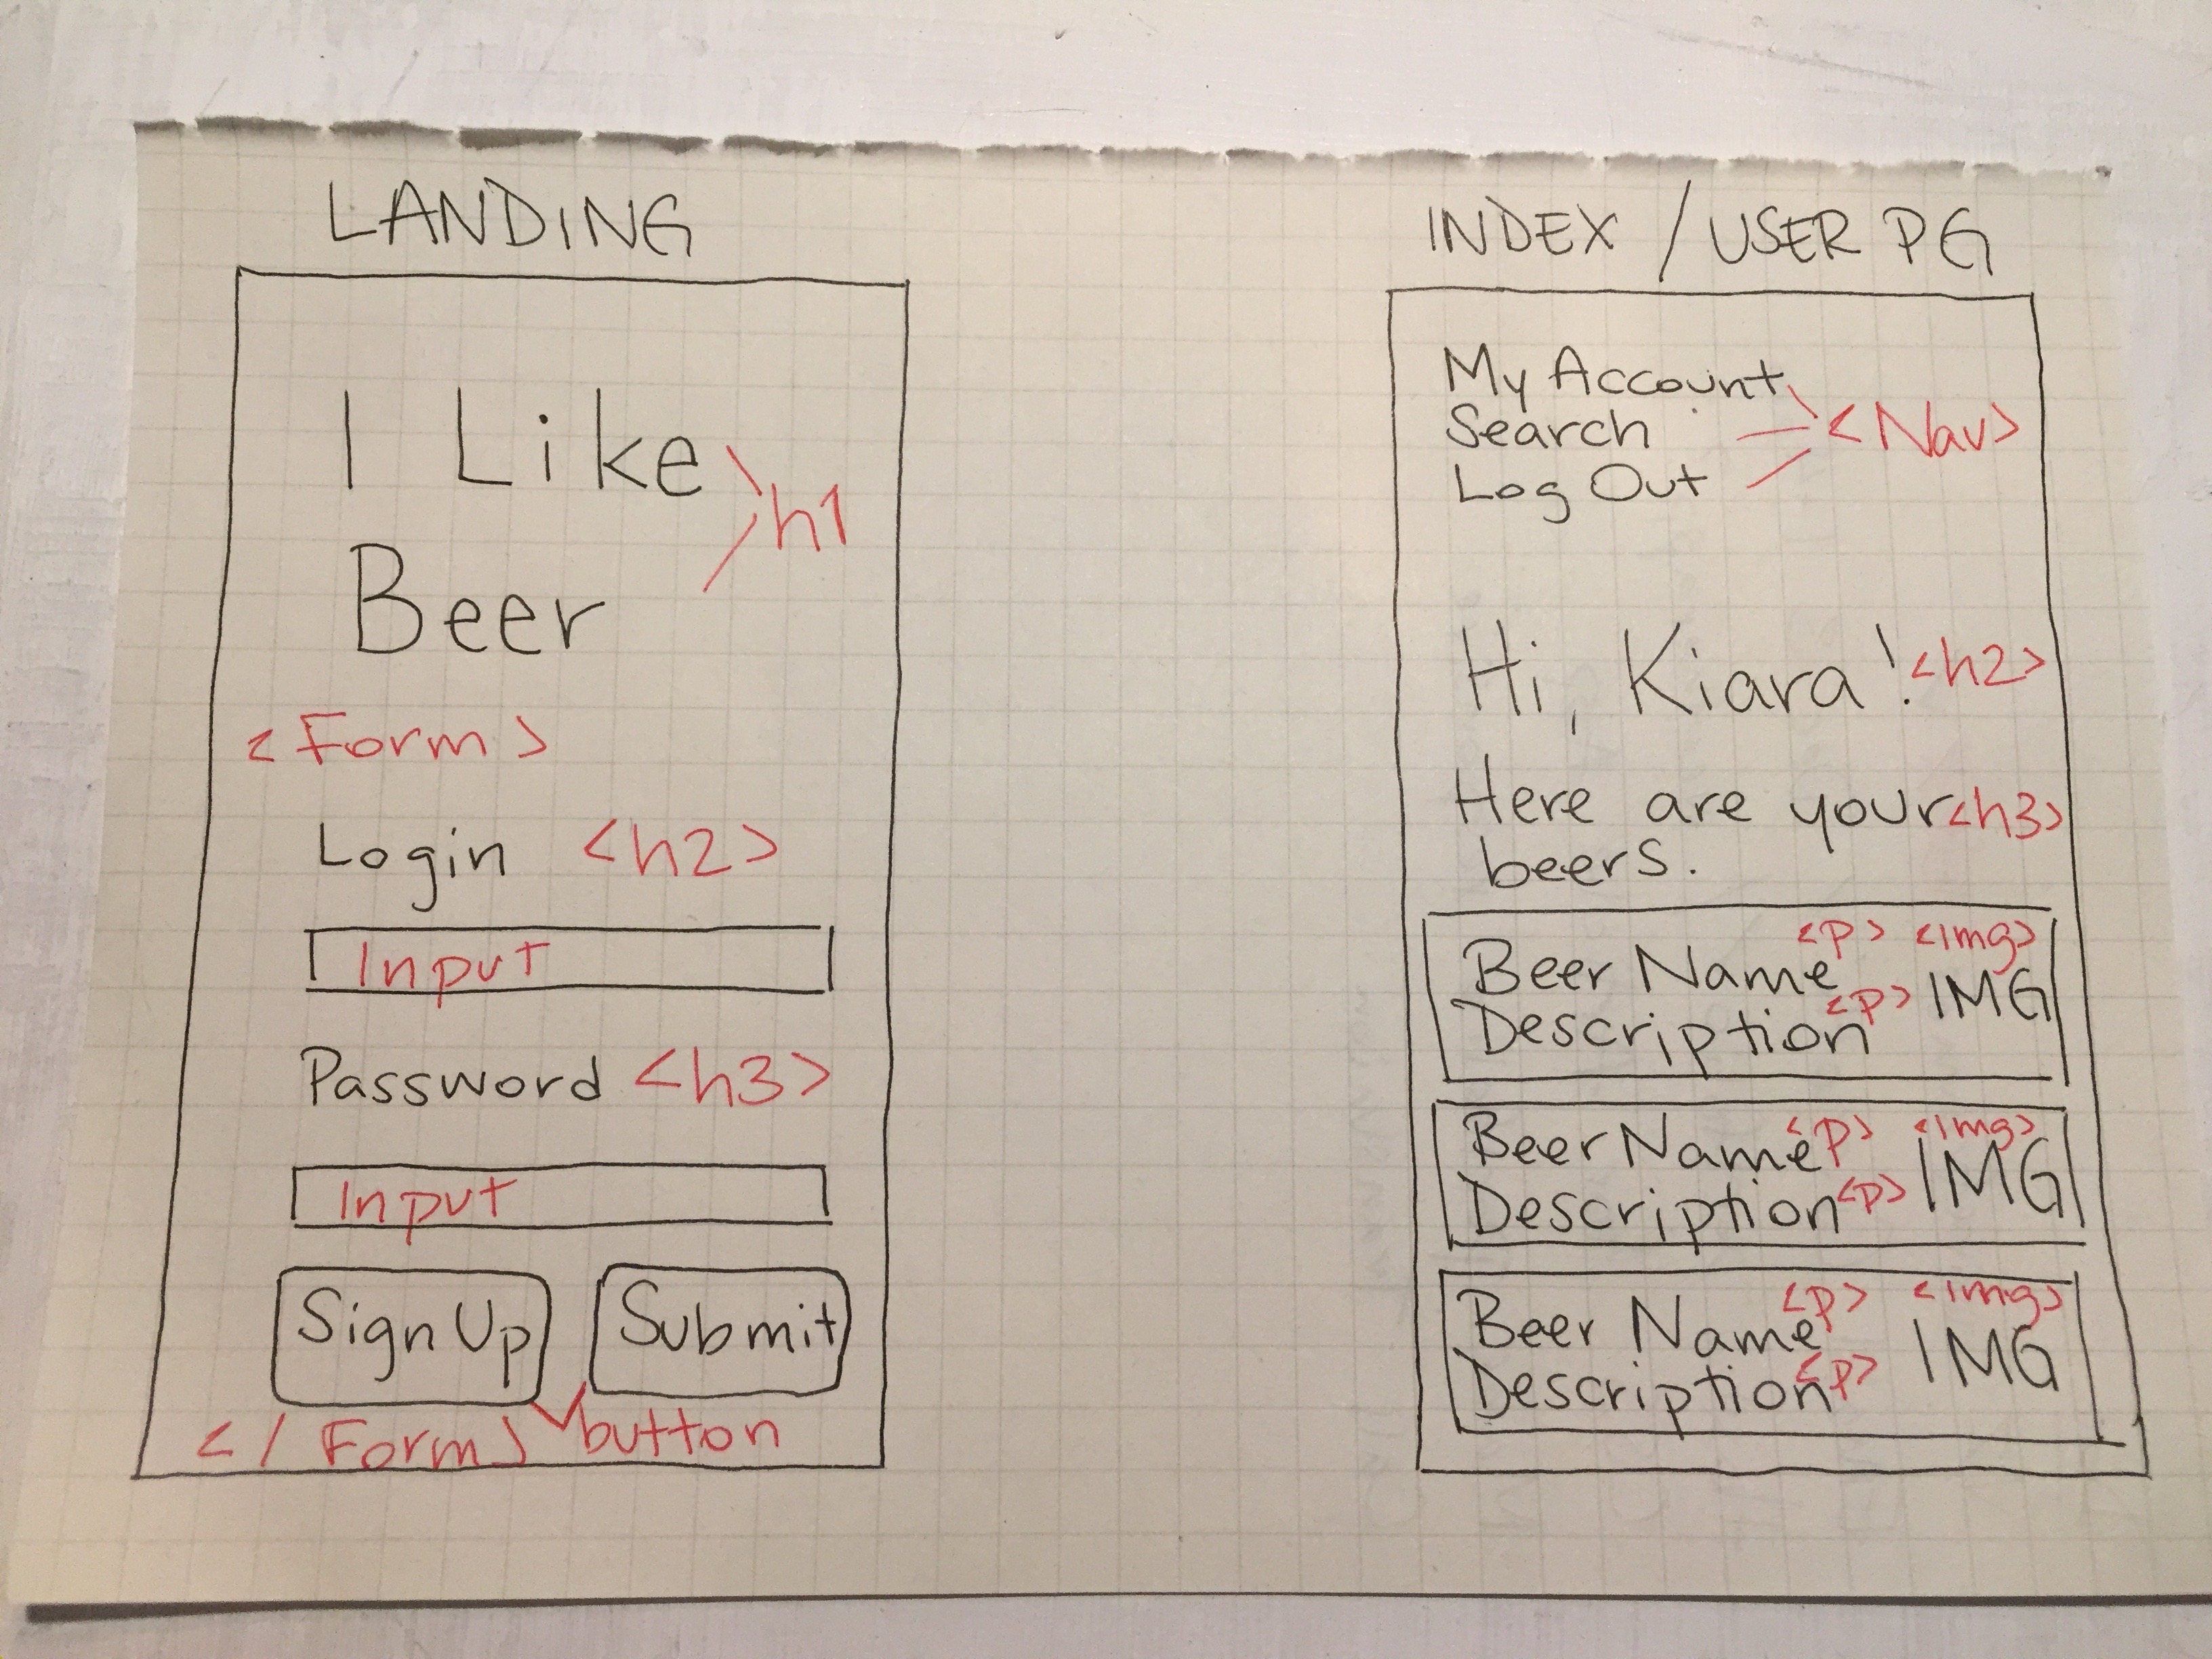 LANDING
I Like
h1
Beer
<Form>
Login <h2>
Input
Password <h3>
Input
Sign Up Submit
</Form> button
INDEX / USER PG
My Account
Search <Nav>
Log Out
Hi, Kiara! <h2>
Here are your <h3>
beers.
<p> <Img>
Beer Name IMG
Description <p>
Beer Name <p> <Img>
Description <p> IMG
<p> <Img>
Beer Name IMG
Description <p>